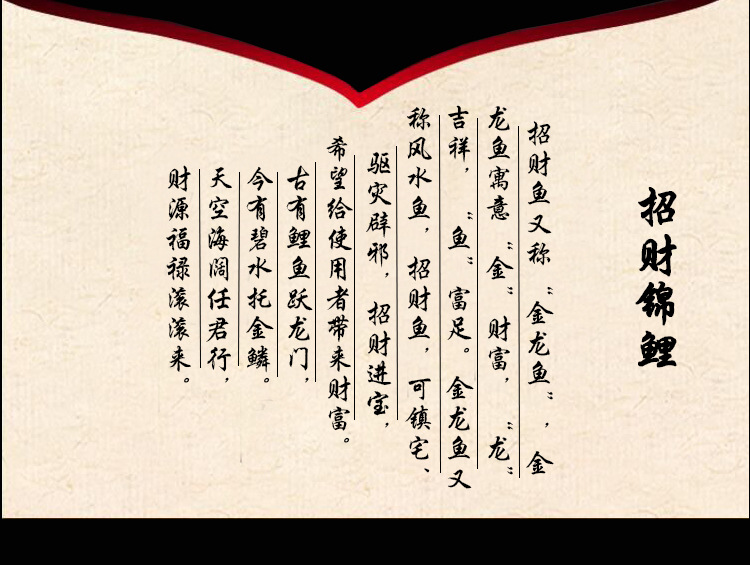 招财锦鲤
招财鱼又称“金龙鱼”,金
龙鱼寓意“金”财富,“龙”
吉祥,“鱼”富足。金龙鱼又
称风水鱼,招财鱼,可镇宅、
驱灾辟邪,招财进宝,
希望给使用者带来财富。
古有鲤鱼跃龙门,
今有碧水托金鳞。
天空海阔任君行,
财源福禄滚滚来。